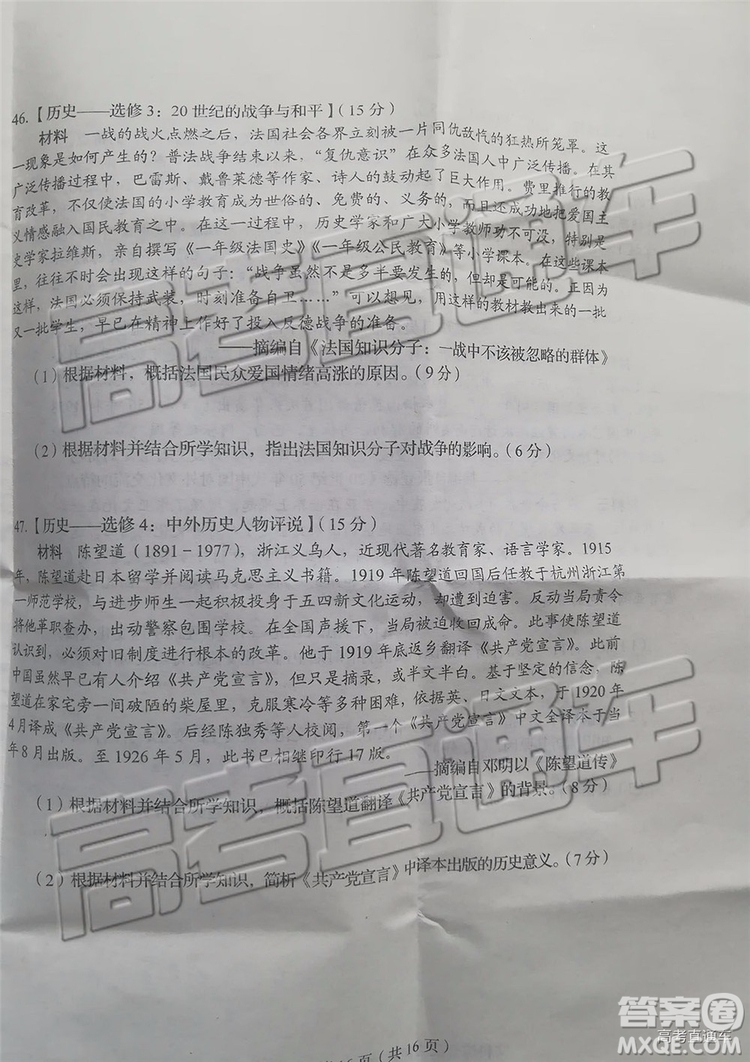 46.【历史——选修3：20世纪的战争与和平】（15分）
材料 一战的战火点燃之后，法国社会各界立刻被一片同仇敌忾的狂热所笼罩。这
一现象是如何产生的？普法战争结束以来，“复仇意识”在众多法国人中广泛传播。在
广泛传播过程中，巴雷斯、戴鲁莱德等作家、诗人的鼓动起了巨大作用。费里推行的教
育改革，不仅使法国的小学教育成为世俗的、免费的、义务的，而且还成功地把爱国主
义情感融入国民教育之中。在这一过程中，历史学家和广大小学教师功不可没，特别是历
史学家拉维斯，亲自撰写《一年级法国史》《一年级公民教育》等小学课本。在这些课本
里，往往不时会出现这样的句子：“战争虽然不是多半要发生的，但却是可能的。正因为
这样，法国必须保持武装，时刻准备自卫……”可以想见，用这样的教材教出来的一批
又一批学生，早已在精神上作好了投入反德战争的准备。
——摘编自《法国知识分子：一战中不该被忽略的群体》
（1）根据材料，概括法国民众爱国情绪高涨的原因。（9分）
（2）根据材料并结合所学知识，指出法国知识分子对战争的影响。（6分）
47.【历史——选修4：中外历史人物评说】（15分）
材料 陈望道（1891-1977），浙江义乌人，近现代著名教育家、语言学家。1915
年，陈望道赴日本留学并阅读马克思主义书籍。1919年陈望道回国后任教于杭州浙江第
一师范学校，与进步师生一起积极投身于五四新文化运动，却遭到迫害。反动当局责令
将他革职查办，出动警察包围学校。在全国声援下，当局被迫收回成命。此事使陈望道
认识到，必须对旧制度进行根本的改革。他于1919年底返乡翻译《共产党宣言》。此前
中国虽然早已有人介绍《共产党宣言》，但只是摘录，或半文半白。基于坚定的信念，陈
望道在家宅旁一间破陋的柴屋里，克服寒冷等多种困难，依据日文版、英文版，于1920年
4月译成《共产党宣言》。后经陈独秀等人校阅，第一个《共产党宣言》中文全译本于当
年8月出版。至1926年5月，此书已相继印行17版。
——摘编自邓明以《陈望道传》
（1）根据材料并结合所学知识，概括陈望道翻译《共产党宣言》的背景。（8分）
（2）根据材料并结合所学知识，简析《共产党宣言》中译本出版的历史意义。（7分）
页（共16页）
高考直通车
高考直通车
答案圈
MXQE.COM
高考直通车